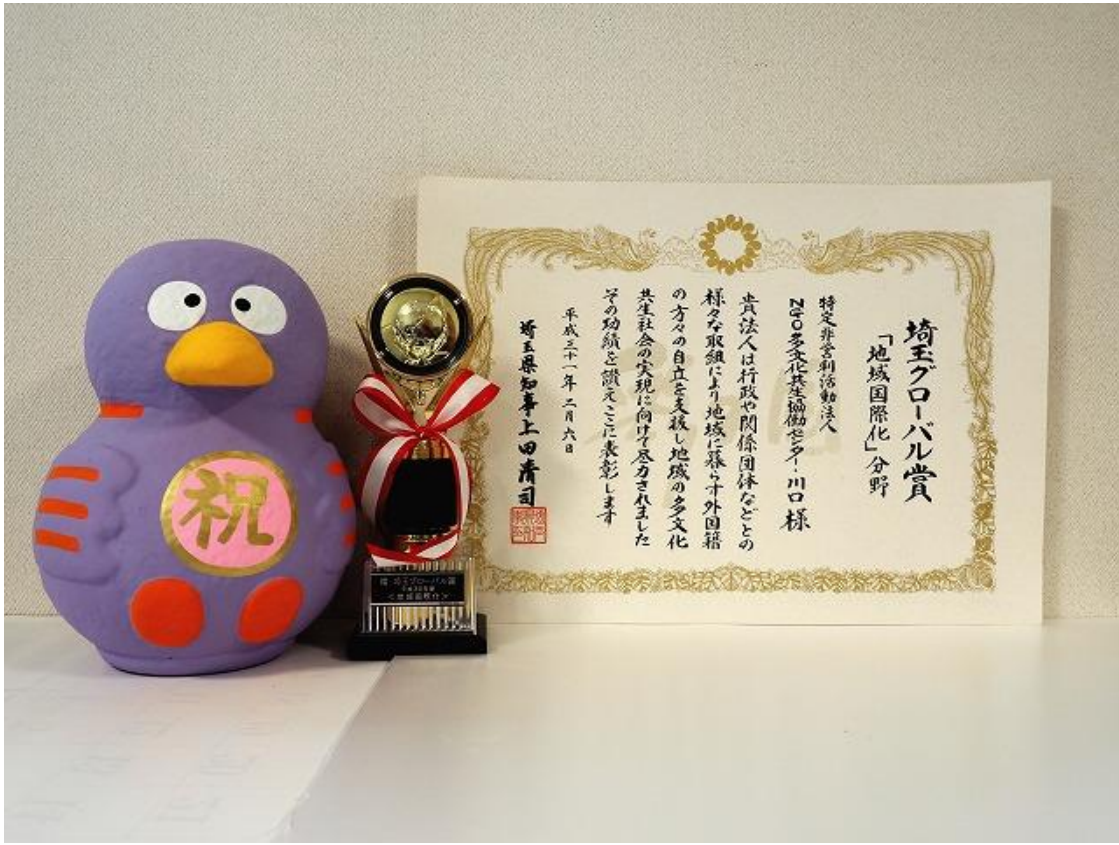 埼玉グローバル賞
「地域国際化」分野
特定非営利活動法人
NPO多文化共生協働センター・川口 様
貴法人は行政や関係団体などとの
様々な取組により地域に暮らす外国籍
の方々の自立を支援し地域の多文化
共生社会の実現に向けて尽力されました
その功績を讃えここに表彰します
平成三十一年二月六日
埼玉県知事上田清司
祝
埼玉グローバル賞